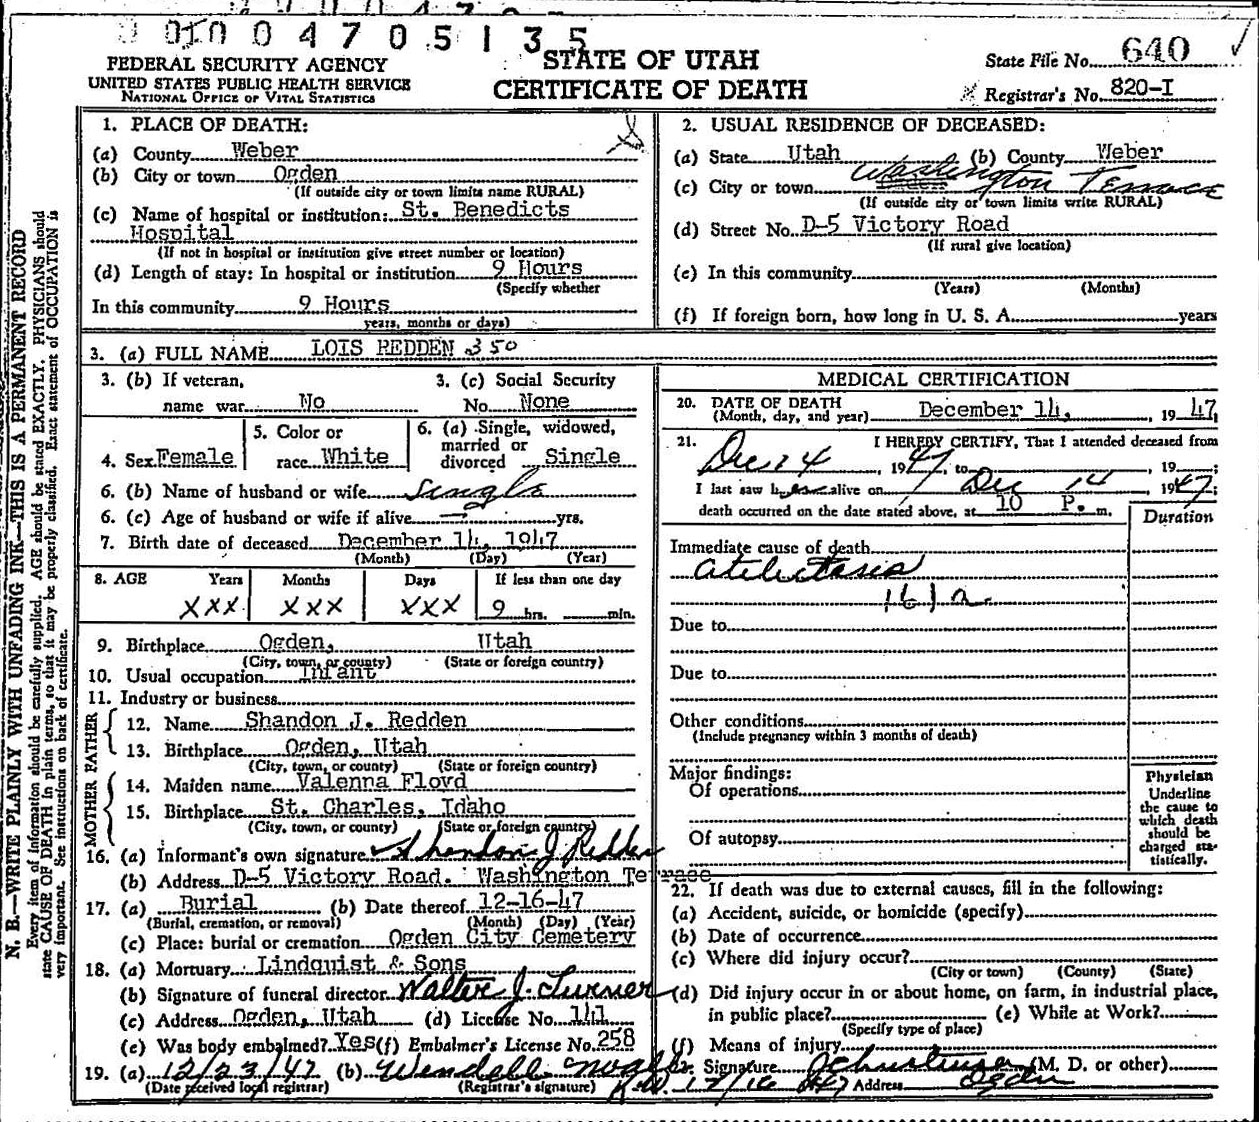 004705135
FEDERAL SECURITY AGENCY
UNITED STATES PUBLIC HEALTH SERVICE
NATIONAL OFFICE OF VITAL STATISTICS
STATE OF UTAH
CERTIFICATE OF DEATH
State File No. 640
Registrar's No. 820-I
N. B.—WRITE PLAINLY WITH UNFADING INK—THIS IS A PERMANENT RECORD
Every item of information should be carefully supplied. AGE should be stated EXACTLY. PHYSICIANS should
state CAUSE OF DEATH in plain terms, so that it may be properly classified. Exact statement of OCCUPATION is
very important. See instructions on back of certificate.
1. PLACE OF DEATH:
(a) County Weber
(b) City or town Ogden
(If outside city or town limits name RURAL)
(c) Name of hospital or institution: St. Benedicts
Hospital
(If not in hospital or institution give street number or location)
(d) Length of stay: In hospital or institution 9 Hours
(Specify whether
In this community 9 Hours
years, months or days)
2. USUAL RESIDENCE OF DECEASED:
(a) State Utah (b) County Weber
(c) City or town Washington Terrace
(If outside city or town limits write RURAL)
(d) Street No. D-5 Victory Road
(If rural give location)
(e) In this community
(Years) (Months)
(f) If foreign born, how long in U. S. A. years
3. (a) FULL NAME LOIS REDDEN 350
3. (b) If veteran, name war No
3. (c) Social Security No. None
4. Sex Female
5. Color or race White
6. (a) Single, widowed, married or divorced Single
6. (b) Name of husband or wife Single
6. (c) Age of husband or wife if alive — yrs.
7. Birth date of deceased December 14, 1947
(Month) (Day) (Year)
8. AGE Years Months Days If less than one day
XXX XXX XXX 9 hrs. min.
9. Birthplace Ogden, Utah
(City, town, or county) (State or foreign country)
10. Usual occupation Infant
11. Industry or business
FATHER
12. Name Shandon J. Redden
13. Birthplace Ogden, Utah
(City, town, or county) (State or foreign country)
MOTHER
14. Maiden name Valenna Floyd
15. Birthplace St. Charles, Idaho
(City, town, or county) (State or foreign country)
16. (a) Informant's own signature Shandon J Redden
(b) Address D-5 Victory Road. Washington Terrace
17. (a) Burial (b) Date thereof 12-16-47
(Burial, cremation, or removal) (Month) (Day) (Year)
(c) Place: burial or cremation Ogden City Cemetery
18. (a) Mortuary Lindquist & Sons
(b) Signature of funeral director Walter J. Turner
(c) Address Ogden, Utah (d) License No. 141
(e) Was body embalmed? Yes (f) Embalmer's License No. 258
19. (a) 12/23/47 (b) Wendell
(Date received local registrar) (Registrar's signature)
MEDICAL CERTIFICATION
20. DATE OF DEATH
(Month, day, and year) December 14, 1947
21. I HEREBY CERTIFY, That I attended deceased from
Dec 14, 1947, to , 19 ;
I last saw her alive on Dec 14 1947;
death occurred on the date stated above, at 10 P. m.
Duration
Immediate cause of death
Atelectasis
161a
Due to
Due to
Other conditions
(Include pregnancy within 3 months of death)
Major findings:
Of operations
Of autopsy
Physician
Underline
the cause to
which death
should be
charged sta-
tistically.
22. If death was due to external causes, fill in the following:
(a) Accident, suicide, or homicide (specify)
(b) Date of occurrence
(c) Where did injury occur?
(City or town) (County) (State)
(d) Did injury occur in or about home, on farm, in industrial place,
in public place? (e) While at Work?
(Specify type of place)
(f) Means of injury
Signature (M. D. or other)
12/16 Address Ogden